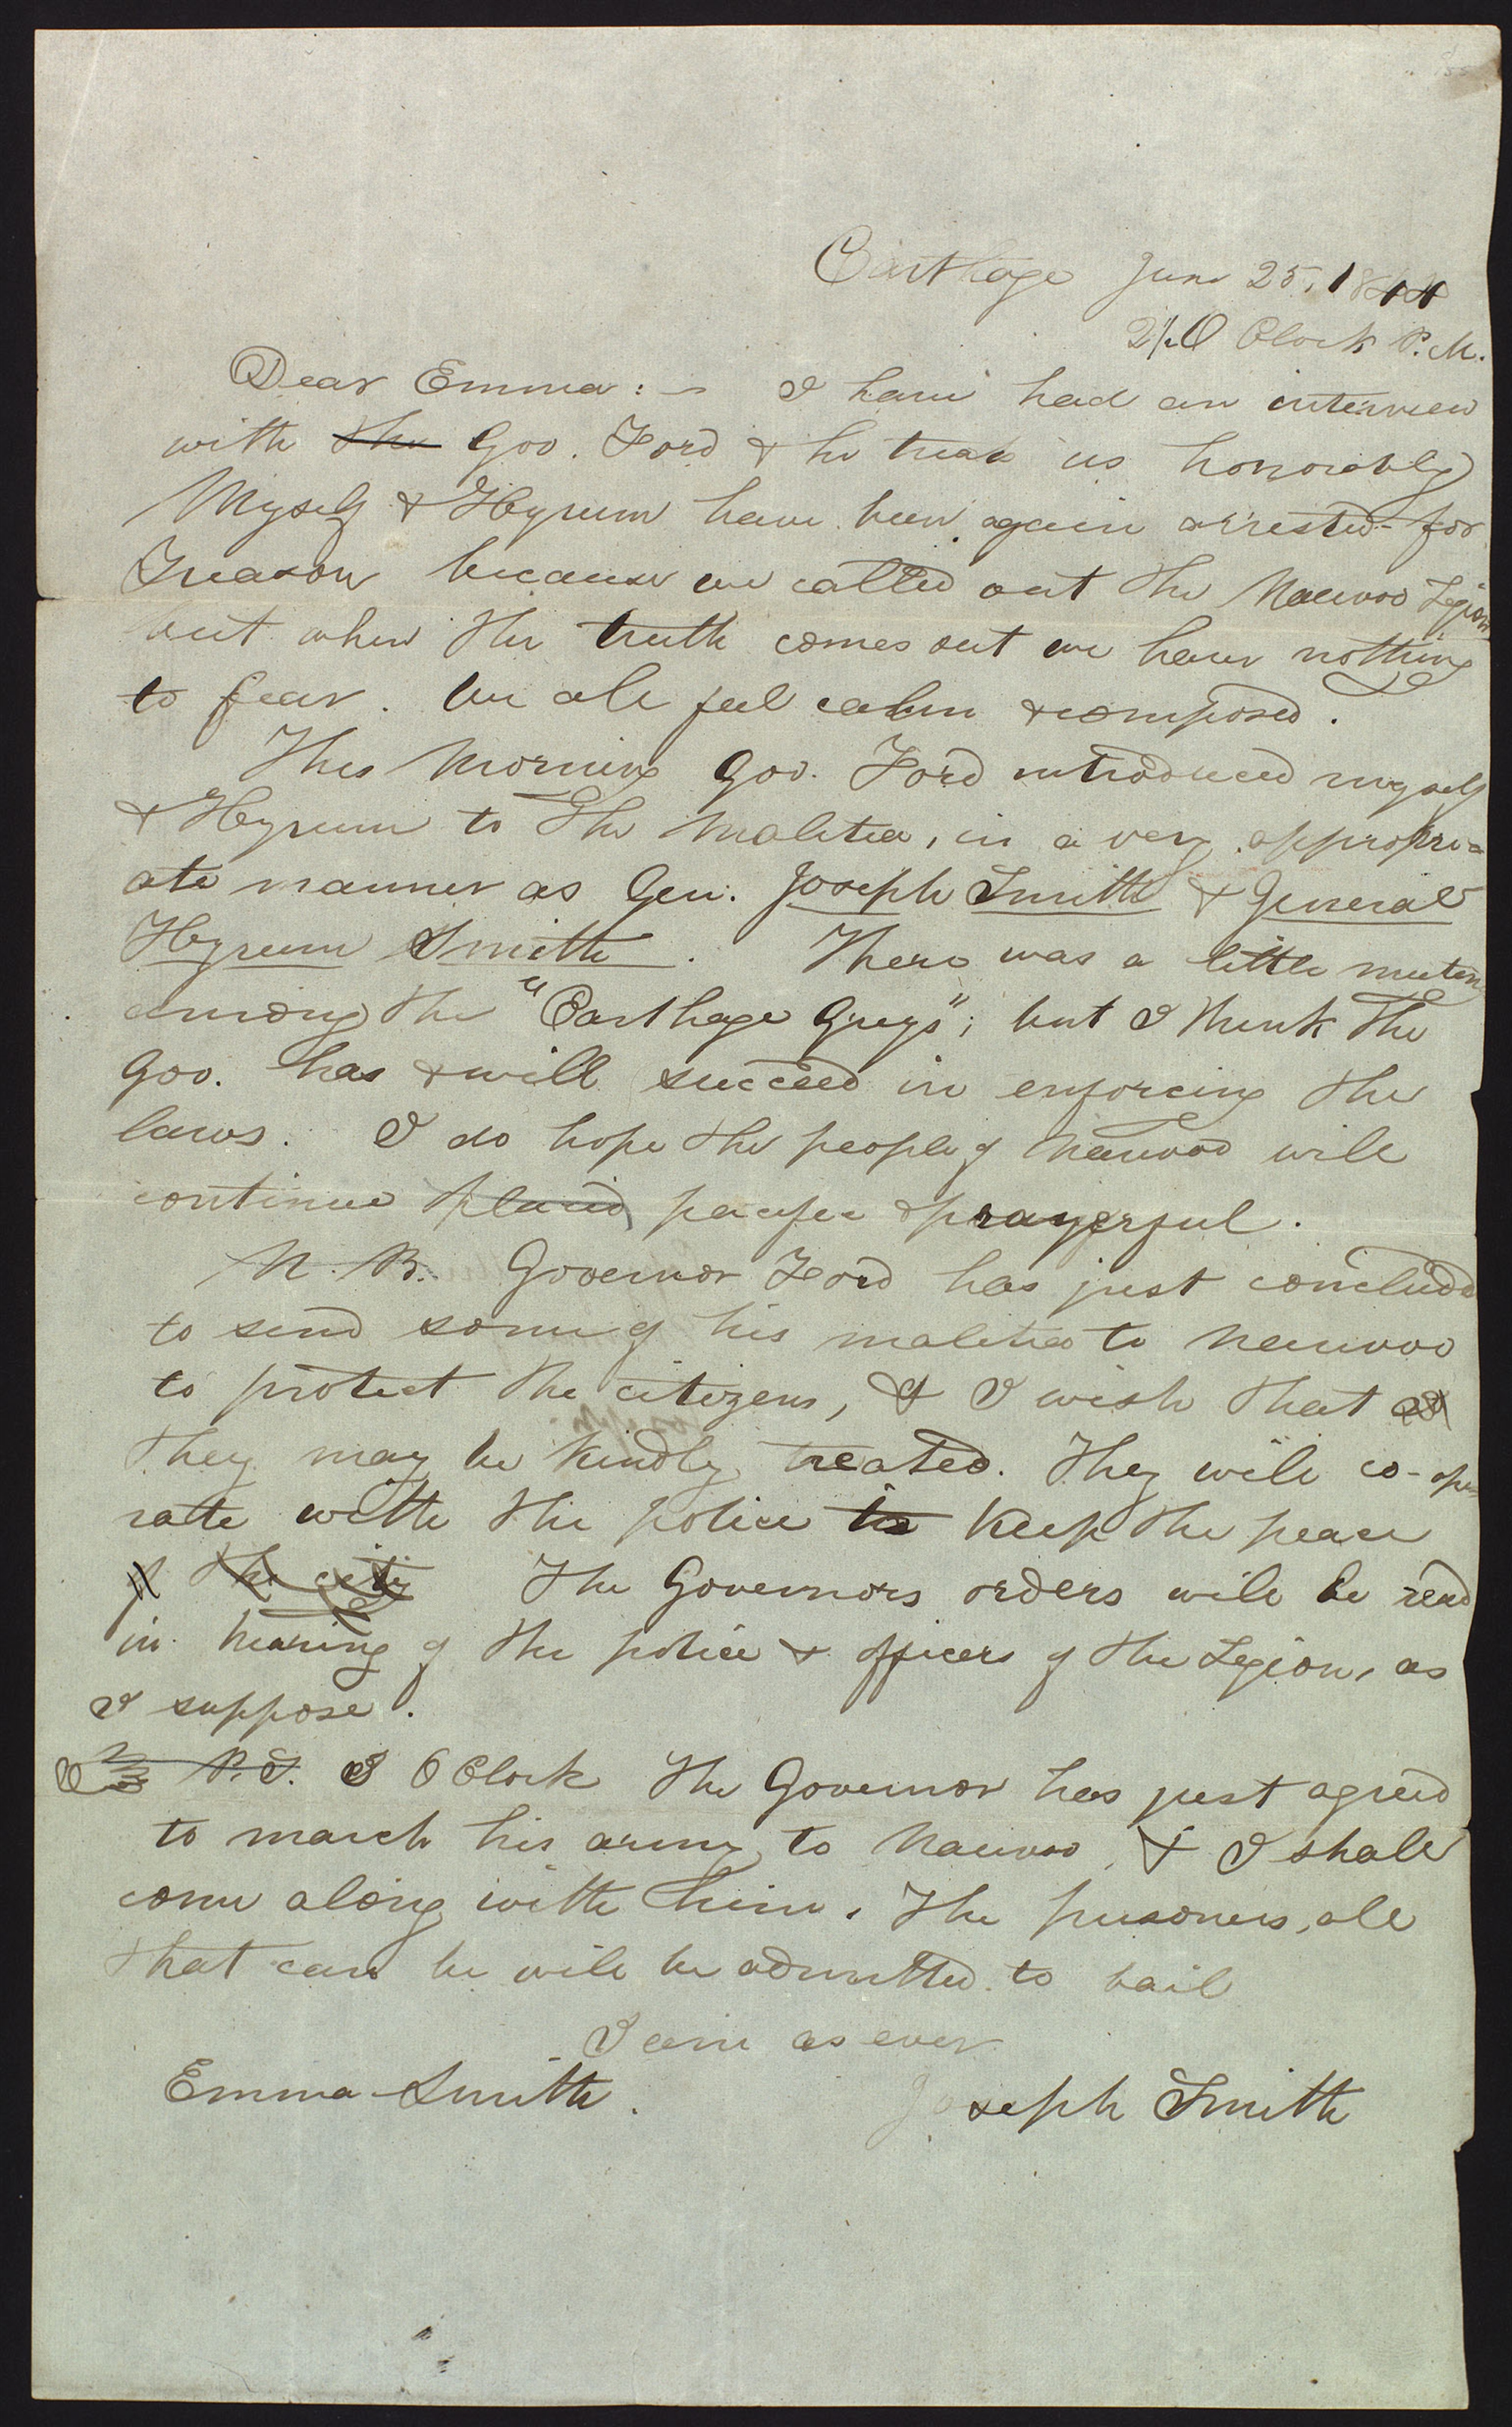 Carthage June 25, 1844
2½ O Clock P. M.
Dear Emma: — I have had an interview
with the Gov. Ford & he treats us honorably
Myself & Hyrum have been again arrested for
Treason because we called out the Nauvoo Legion
but when the truth comes out we have nothing
to fear. We all feel calm & composed.
This Morning Gov. Ford introduced myself
& Hyrum to the Malitia, in a very appropri-
ate manner as Gen. Joseph Smith & General
Hyrum Smith. There was a little mutiny
among the "Carthage Greys"; but I think the
Gov. has & will succeed in enforcing the
laws. I do hope the people of Nauvoo will
continue placid pacific & prayerful.
N. B. Governor Ford has just concluded
to send some of his malitia to Nauvoo
to protect the citizens, & I wish that
they may be kindly treated. They will co-ope
rate with the police to keep the peace
of the city The Governors orders will be read
in hearing of the police & officers of the Legion, as
I suppose.
P.S. 3 O Clock The Governor has just agreed
to march his army to Nauvoo, & I shall
come along with him. The prisoners, all
that can be will be admitted to bail
I am as ever
Emma Smith. Joseph Smith